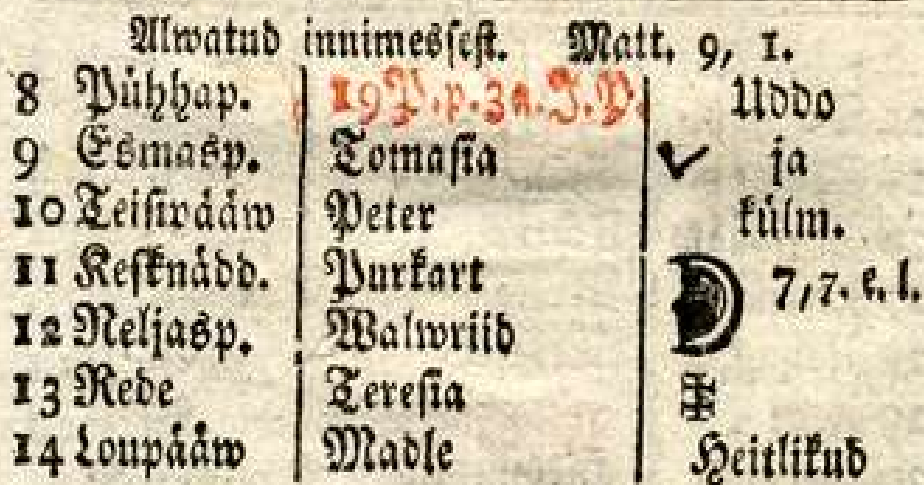 Alwatud innimessest. Matt. 9, 1.
8 Pühhap. 19 P. p. 3 a. J. P. Uddo
9 Esmasp. Tomasia ja
10 Teisiwääw Peter külm.
11 Kesknädd. Purkart 7, 7. e. l.
12 Neljasp. Walwriid
13 Rede Teresia
14 Loupääw Madle Heitlikud